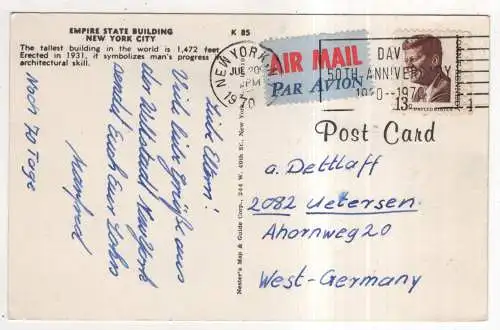 EMPIRE STATE BUILDING
NEW YORK CITY
K 85
The tallest building in the world is 1,472 feet.
Erected in 1931, it symbolizes man's progress
architectural skill.
Liebe Eltern!
Viele liebe Grüße aus
der Weltstadt New York
sendet Euch Euer Sohn
Manfred
Noch 70 Tage
Nester's Map & Guide Corp., 244 W. 49th St., New York, N.
NEW YORK, N.
JUL
PM
1970
AIR MAIL
PAR AVION
50TH ANNIVERSARY
1920-1970
JOHN F. KENNEDY
13c
UNITED STATES
1
Post Card
a. Dettlaff
2082 Uetersen
Ahornweg 20
West-Germany